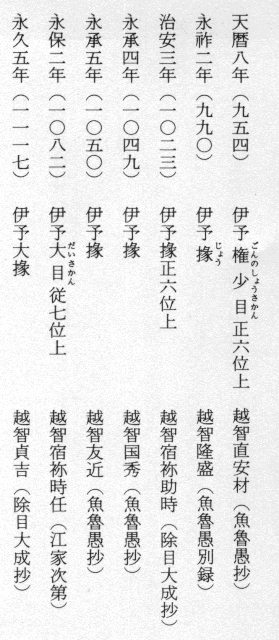 天暦八年（九五四）　伊予権少目正六位上　越智直安材（魚魯愚抄）
永祚二年（九九〇）　伊予掾　越智隆盛（魚魯愚別録）
治安三年（一〇二三）　伊予掾正六位上　越智宿祢助時（除目大成抄）
永承四年（一〇四九）　伊予掾　越智国秀（魚魯愚抄）
永承五年（一〇五〇）　伊予掾　越智友近（魚魯愚抄）
永保二年（一〇八二）　伊予大目従七位上　越智宿祢時任（江家次第）
永久五年（一一一七）　伊予大掾　越智貞吉（除目大成抄）
ごんのしょうさかん
じょう
だいさかん